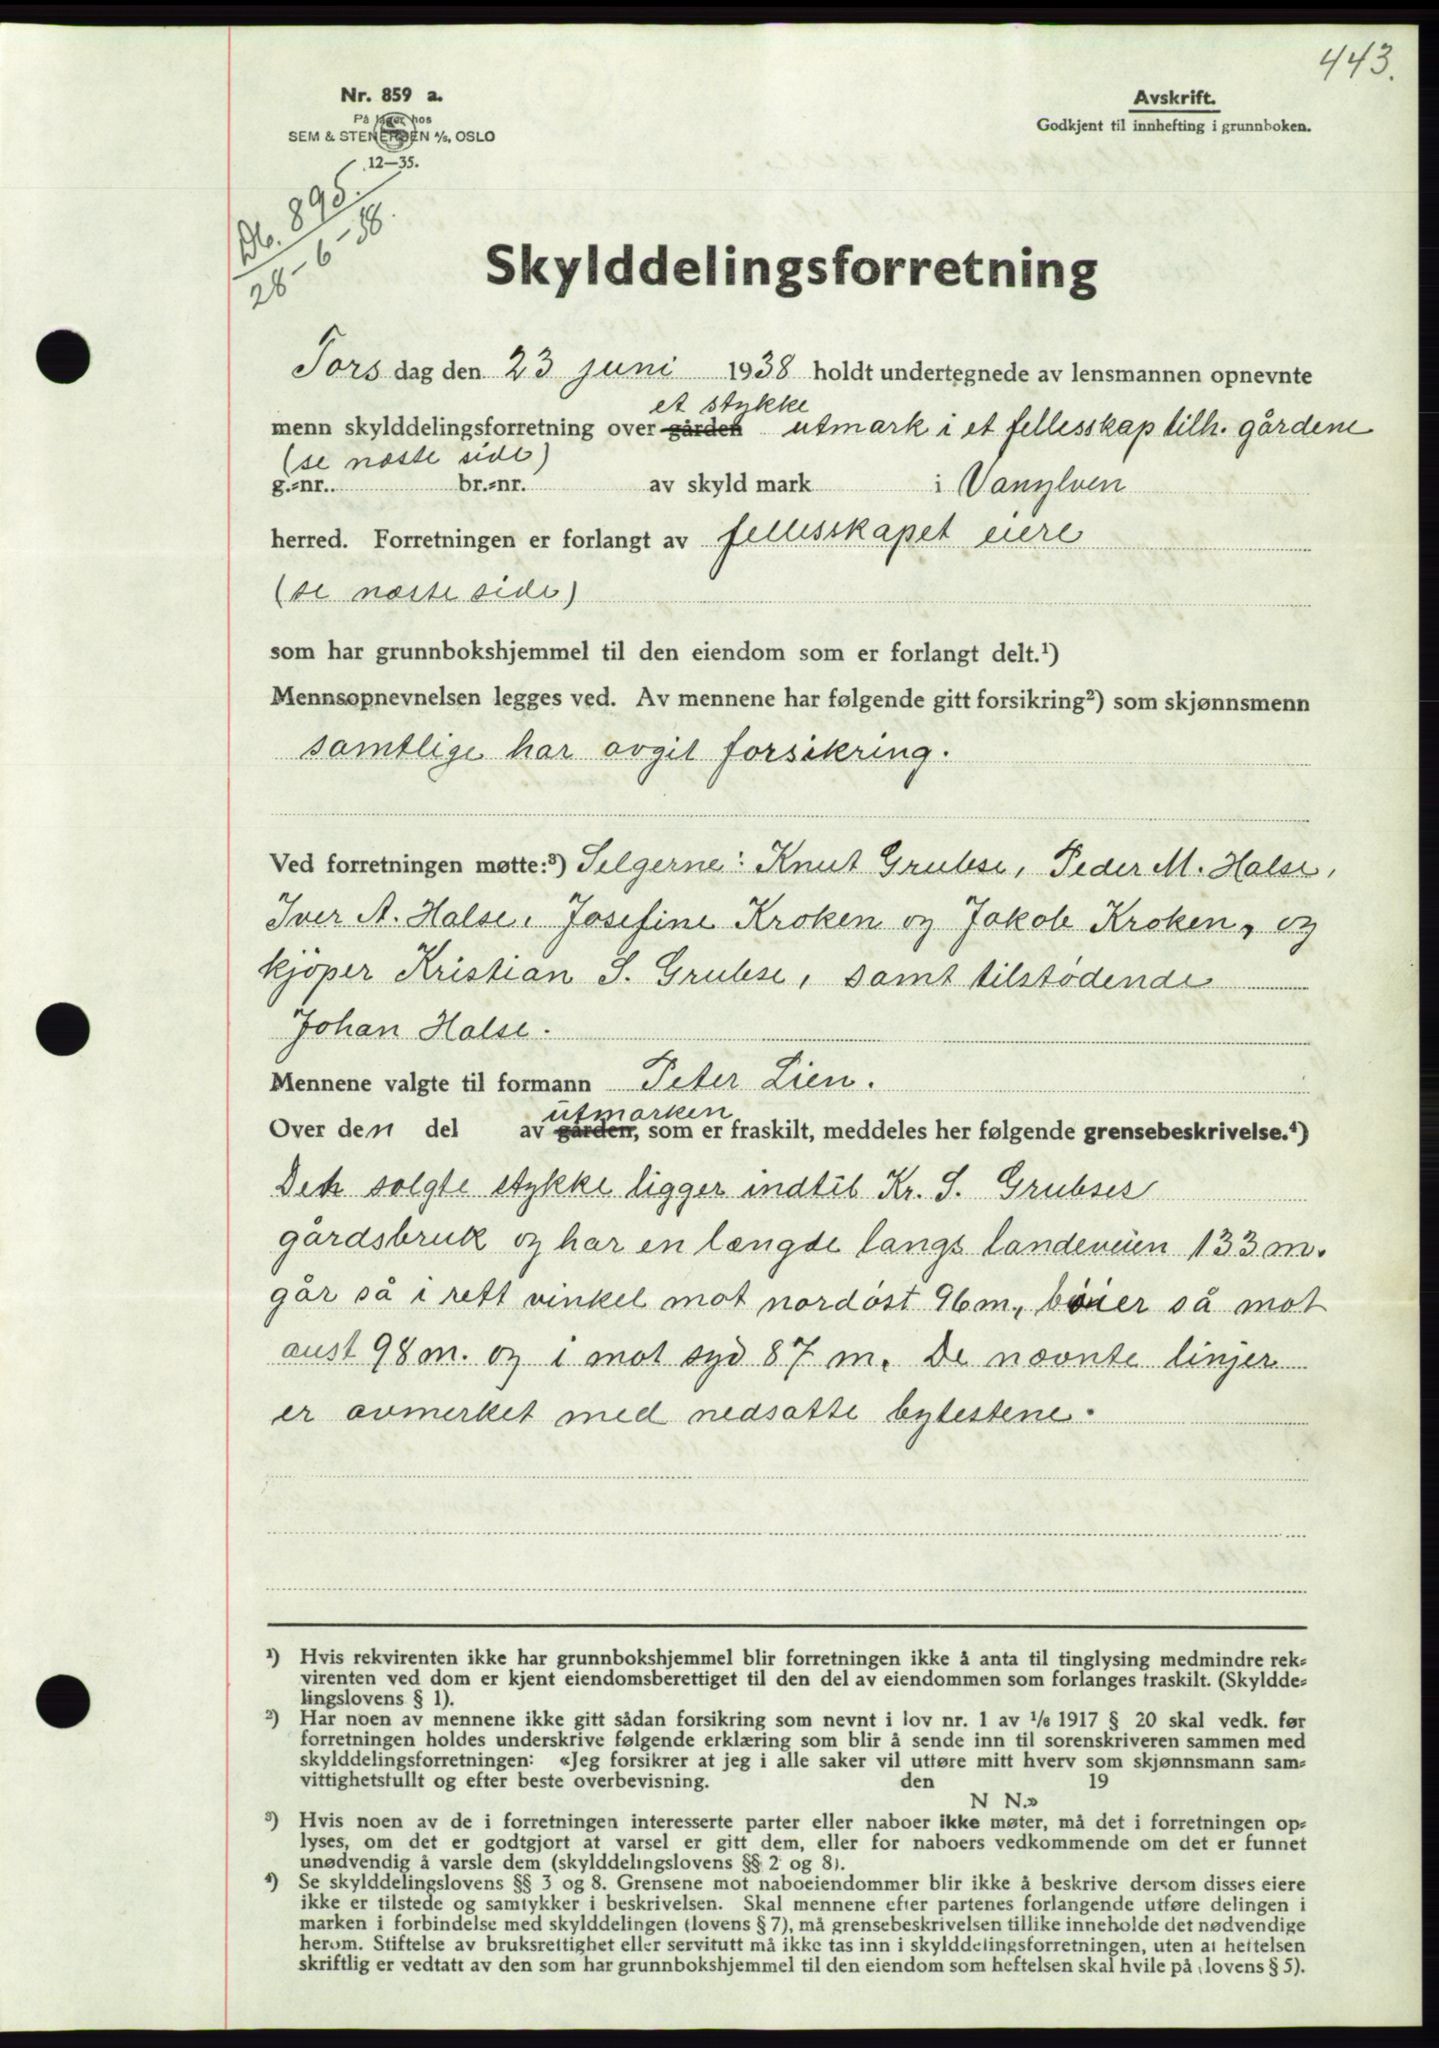 443.
Nr. 859 a.
På lager hos
SEM & STENERSEN A/S, OSLO
12—35.
Avskrift.
Godkjent til innhefting i grunnboken.
Db. 895.
28-6-38.
Skylddelingsforretning
Tors dag den 23 juni 1938 holdt undertegnede av lensmannen opnevnte
et stykke
menn skylddelingsforretning over gården utmark i et fellesskap tilh. gårdene
(se næste side)
g.-nr. br.-nr. av skyld mark i Vanylven
herred. Forretningen er forlangt av fellesskapet eiere
(se næste side)
som har grunnbokshjemmel til den eiendom som er forlangt delt.¹)
Mennsopnevnelsen legges ved. Av mennene har følgende gitt forsikring²) som skjønnsmenn
samtlige har avgit forsikring.
Ved forretningen møtte:³) Selgerne: Knut Grubse, Peder M. Halse,
Iver A. Halse, Josefine Kroken og Jakob Kroken, og
kjöper Kristian S. Grubse, samt tilstödende
Johan Halse.
Mennene valgte til formann Peter Lien.
utmarken
Over den del av gården, som er fraskilt, meddeles her følgende grensebeskrivelse.⁴)
Det solgte stykke ligger indtil Kr. S. Grubses
gårdsbruk og har en længde langs landeveien 133 m.
går så i rett vinkel mot nordöst 96 m, böier så mot
aust 98 m. og i mot syd 87 m. De nævnte linjer
er avmerket med nedsatte bytestene.
¹) Hvis rekvirenten ikke har grunnbokshjemmel blir forretningen ikke å anta til tinglysing medmindre rek-
virenten ved dom er kjent eiendomsberettiget til den del av eiendommen som forlanges fraskilt. (Skyldde-
lingslovens § 1).
²) Har noen av mennene ikke gitt sådan forsikring som nevnt i lov nr. 1 av 1/6 1917 § 20 skal vedk. før
forretningen holdes underskrive følgende erklæring som blir å sende inn til sorenskriveren sammen med
skylddelingsforretningen: «Jeg forsikrer at jeg i alle saker vil utføre mitt hverv som skjønnsmann sam-
vittighetsfullt og efter beste overbevisning. den 19
N N.»
³) Hvis noen av de i forretningen interesserte parter eller naboer ikke møter, må det i forretningen op-
lyses, om det er godtgjort at varsel er gitt dem, eller for naboers vedkommende om det er funnet
unødvendig å varsle dem (skylddelingslovens §§ 2 og 8).
⁴) Se skylddelingslovens §§ 3 og 8. Grensene mot naboeiendommer blir ikke å beskrive dersom disses eiere
ikke er tilstede og samtykker i beskrivelsen. Skal mennene efter partenes forlangende utføre delingen i
marken i forbindelse med skylddelingen (lovens § 7), må grensebeskrivelsen tillike inneholde det nødvendige
herom. Stiftelse av bruksrettighet eller servitutt må ikke tas inn i skylddelingsforretningen, uten at heftelsen
skriftlig er vedtatt av den som har grunnbokshjemmel til den eiendom som heftelsen skal hvile på (lovens § 5).